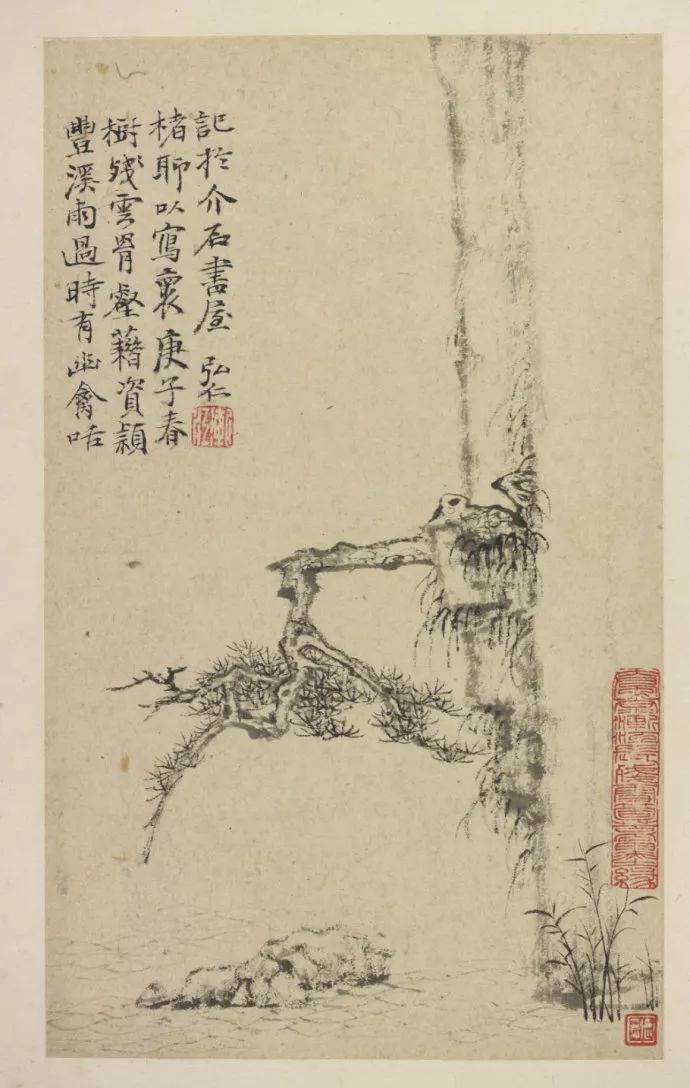 豐溪雨過時有幽禽咶
樹殘雲冐壑藉資穎
楮聊以寫褱庚子春
記於介石書屋 弘仁